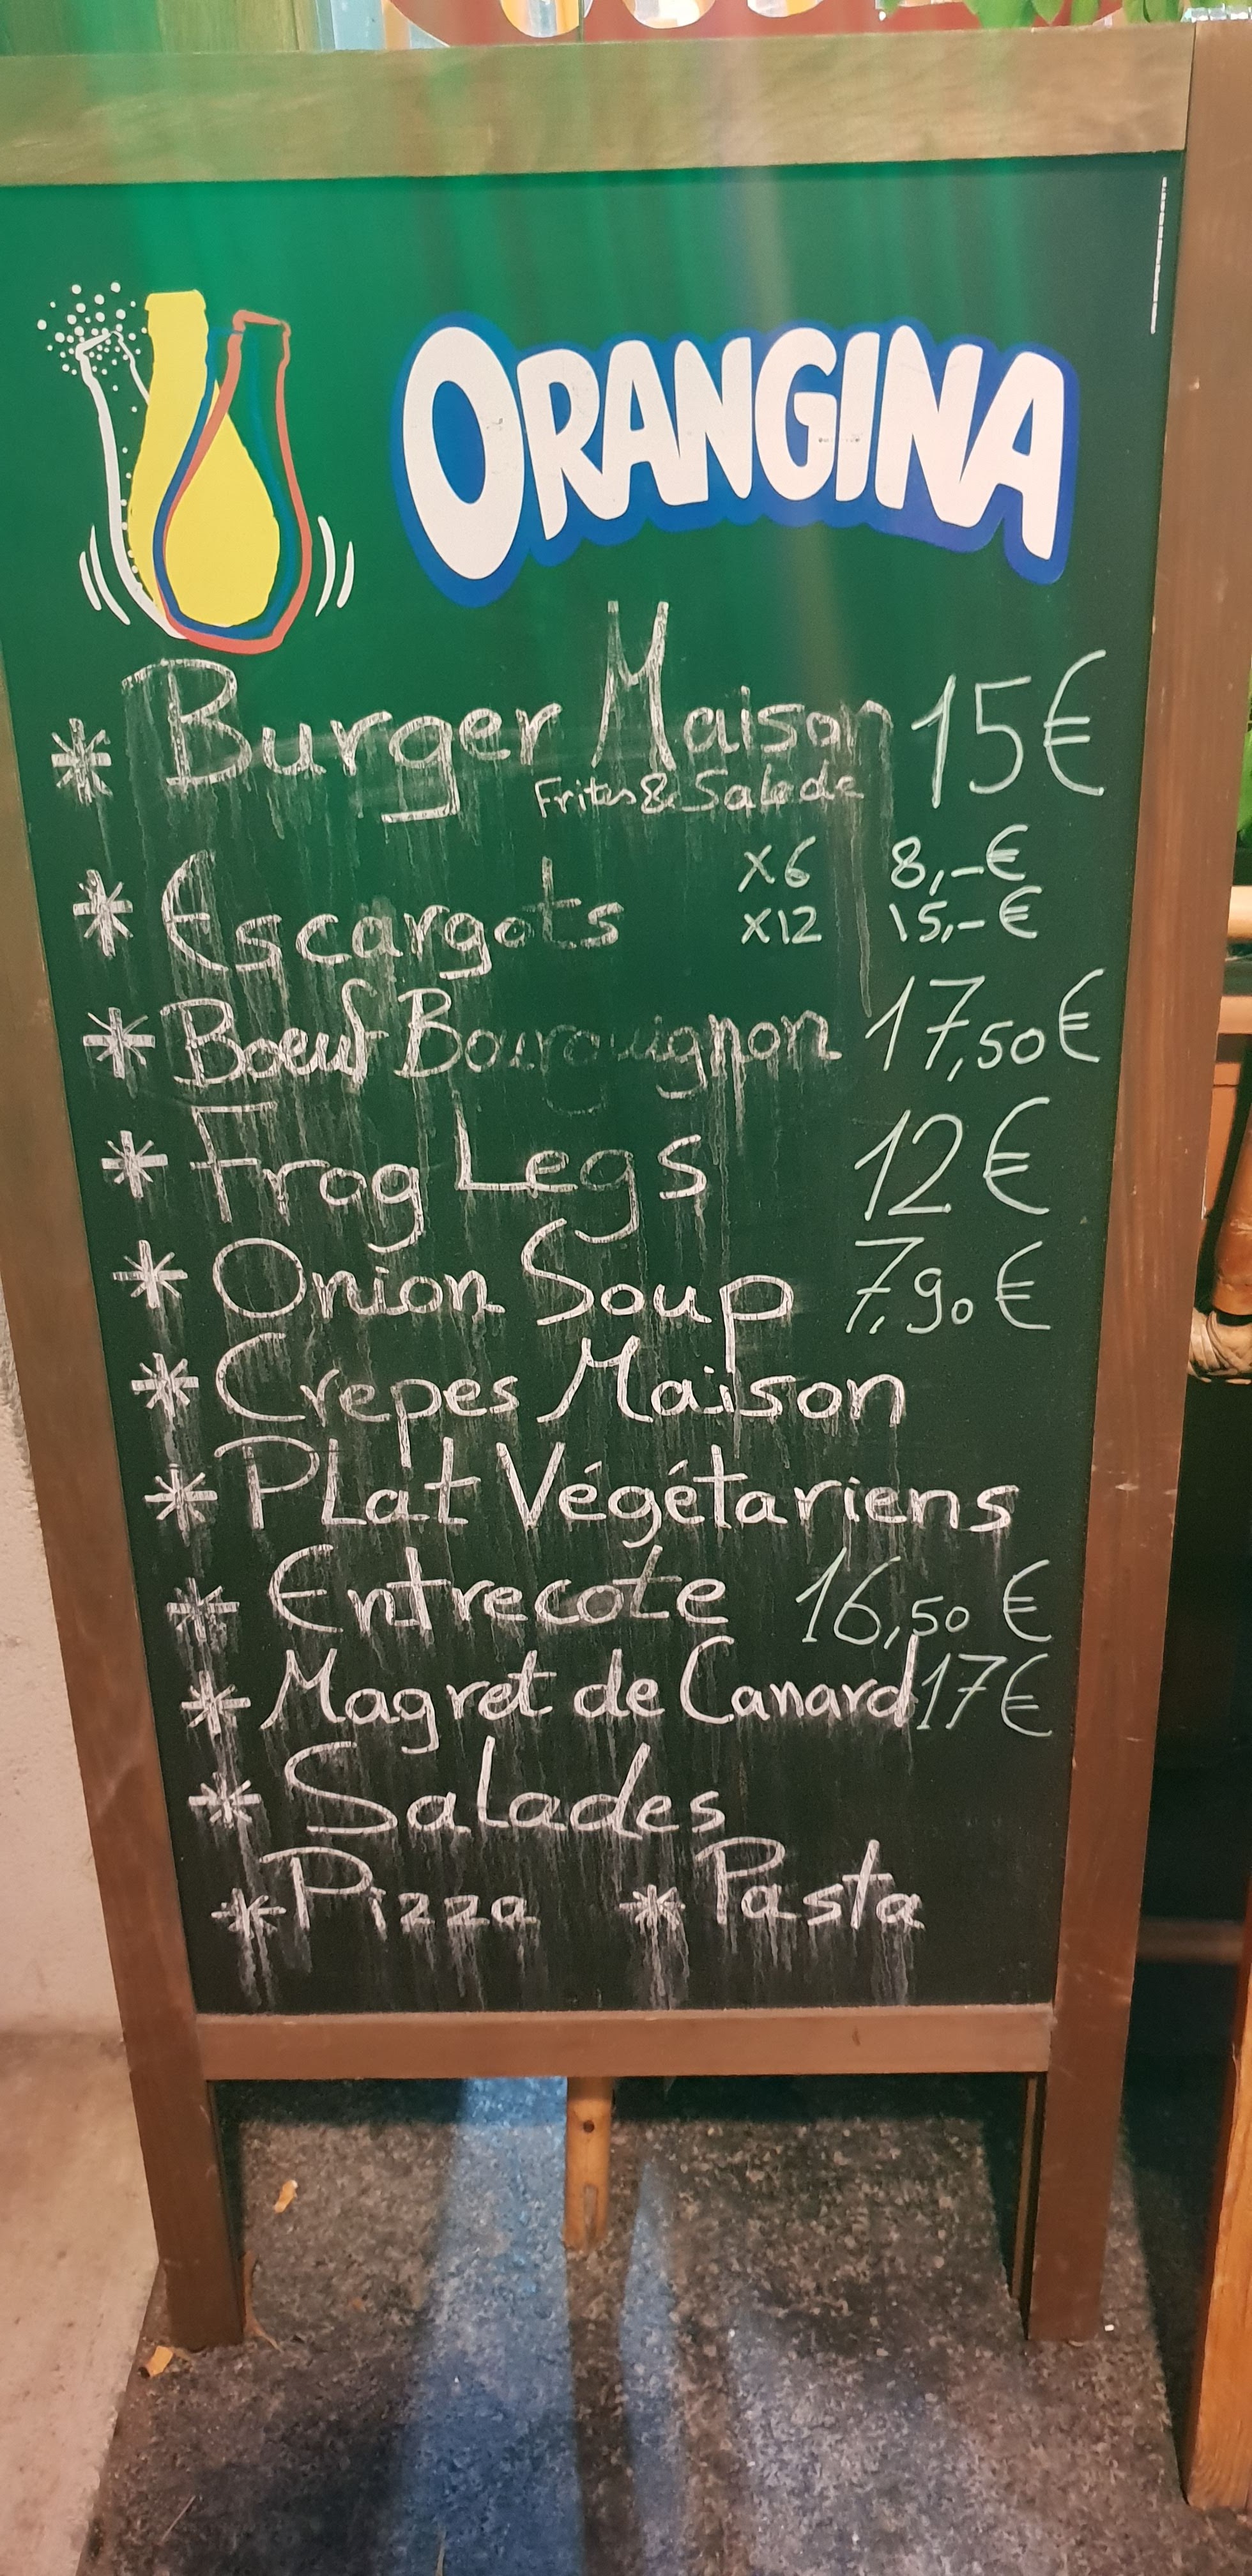 ORANGINA
* Burger Maison 15€
Frites & Salade
* Escargots x6 8,-€
x12 15,-€
* Boeuf Bourguignon 17,50€
* Frog Legs 12€
* Onion Soup 7,90€
* Crepes Maison
* PLat Végétariens
* Entrecote 16,50€
* Magret de Canard 17€
* Salades
* Pizza * Pasta